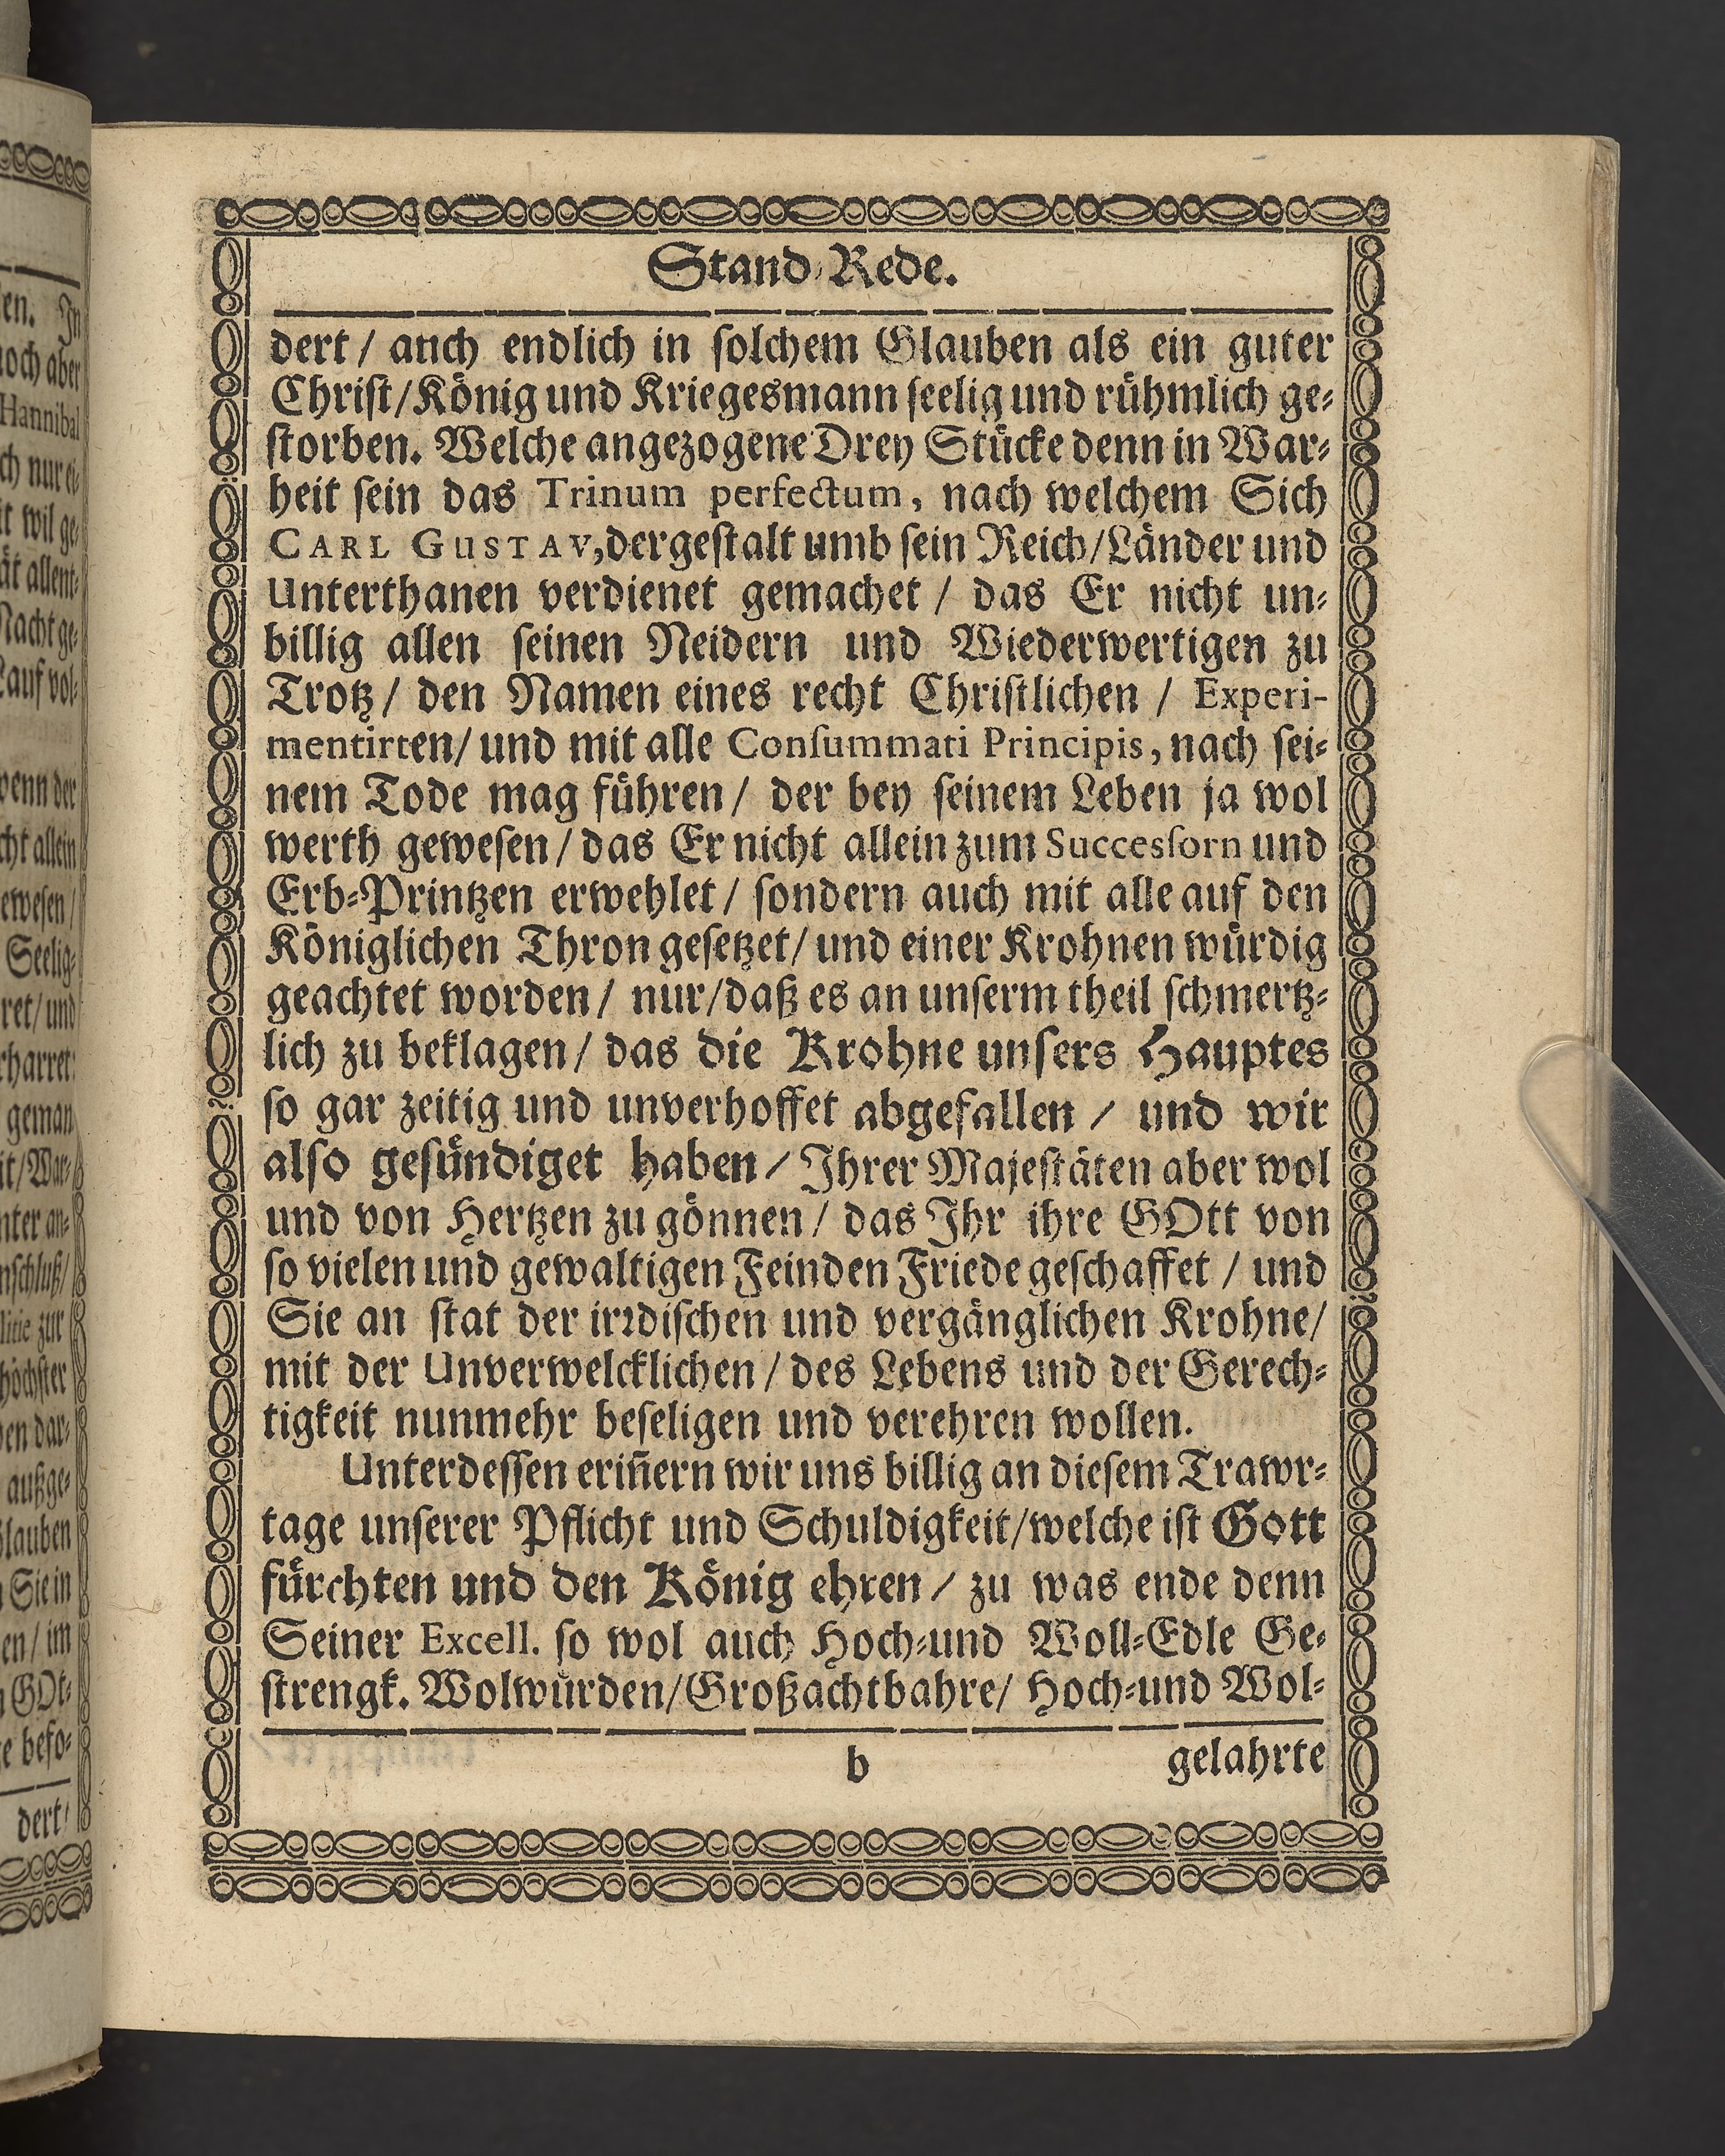 Stand-Rede.
dert / auch endlich in ſolchem Glauben als ein guter
Chriſt/König und Kriegesmann ſeelig und rühmlich ge-
ſtorben. Welche angezogene Drey Stücke denn in War-
heit ſein das Trinum perfectum, nach welchem Sich
CARL GUSTAV, dergeſtalt umb ſein Reich/Länder und
Unterthanen verdienet gemachet / das Er nicht un-
billig allen ſeinen Neidern und Wiederwertigen zu
Trotz / den Namen eines recht Chriſtlichen / Experi-
mentirten/ und mit alle Conſummati Principis, nach ſei-
nem Tode mag führen / der bey ſeinem Leben ja wol
werth geweſen / das Er nicht allein zum Succesſorn und
Erb-Printzen erwehlet / ſondern auch mit alle auf den
Königlichen Thron geſetzet/ und einer Krohnen würdig
geachtet worden / nur/daß es an unſerm theil ſchmertz-
lich zu beklagen / das die Krohne unſers Hauptes
ſo gar zeitig und unverhoffet abgefallen / und wir
alſo geſündiget haben / Ihrer Majeſtäten aber wol
und von Hertzen zu gönnen / das Ihr ihre GOtt von
ſo vielen und gewaltigen Feinden Friede geſchaffet / und
Sie an ſtat der irꝛdiſchen und vergänglichen Krohne/
mit der Unverwelcklichen / des Lebens und der Gerech-
tigkeit nunmehr beſeligen und verehren wollen.
Unterdeſſen eriñern wir uns billig an dieſem Trawr-
tage unſerer Pflicht und Schuldigkeit/welche iſt Gott
fürchten und den König ehren / zu was ende denn
Seiner Excell. ſo wol auch Hoch-und Woll-Edle Ge-
ſtrengk. Wolwürden/Großachtbahre/ Hoch-und Wol-
b gelahrte
en. In
noch aber
Hannibal
ch nur ei-
it wil ge-
ät allent-
Nacht ge-
Lauf vol-
wenn der
cht allein
eweſen /
Seelig-
ret/ und
rharret:
geman
it/War-
nter an-
nſchluß/
litie zur
höchſter
en dar-
außge-
Glauben
Sie in
en/ im
GOt-
e befo-
dert/